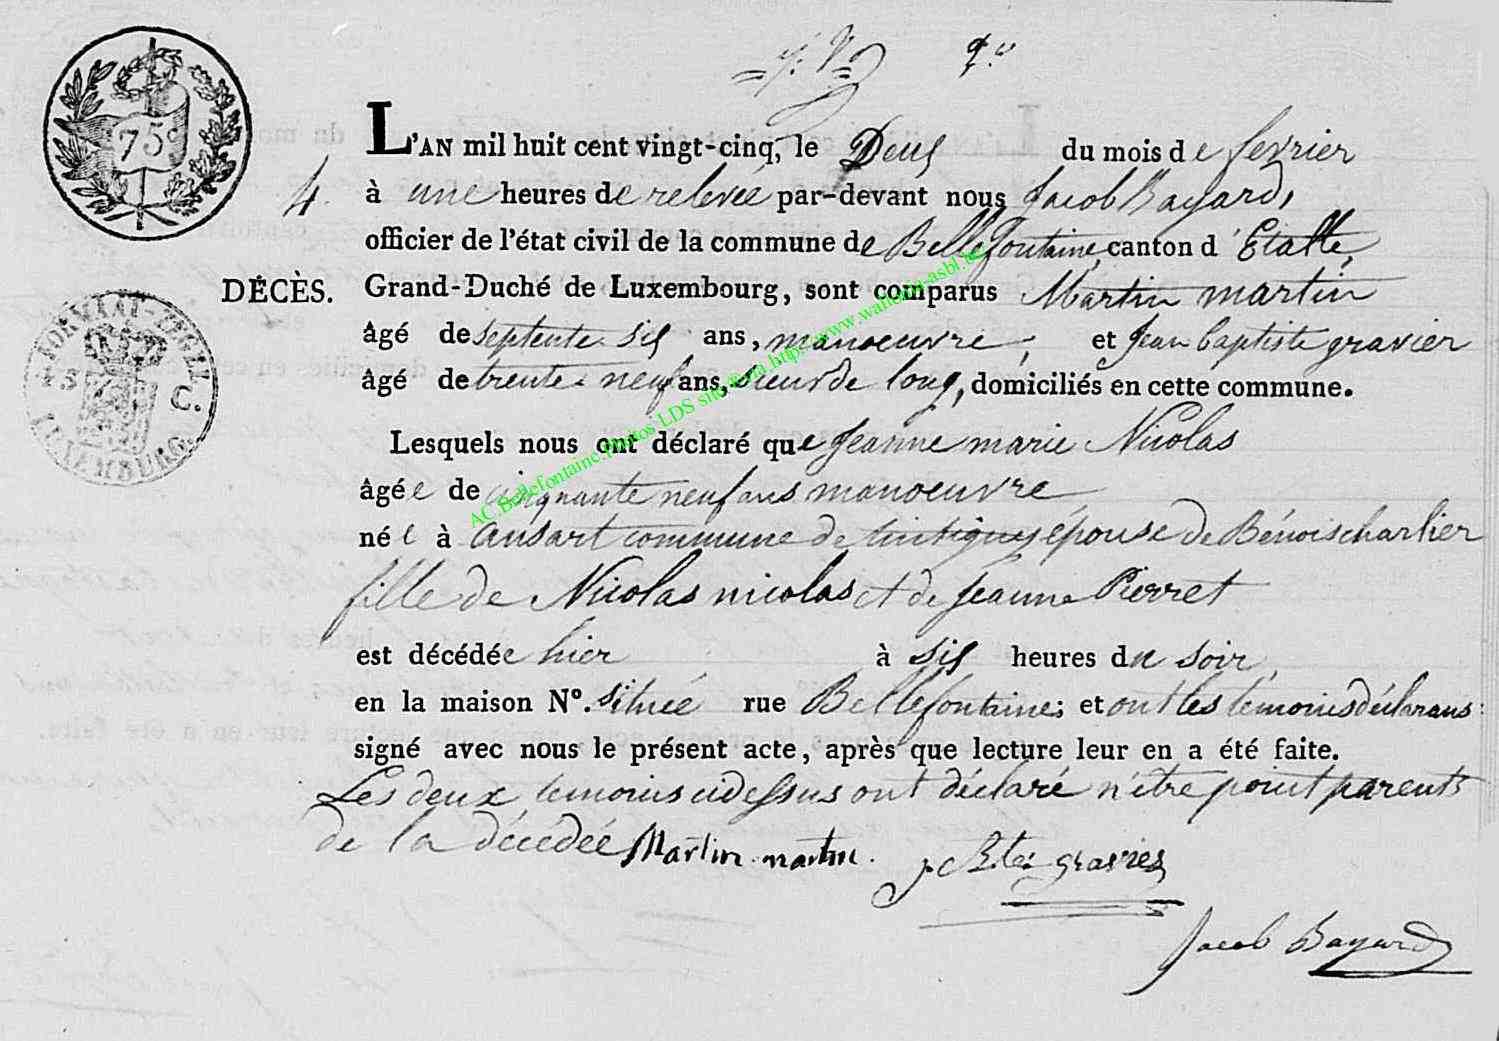 75c
4.
L'AN mil huit cent vingt-cinq, le Deux du mois de fevrier
à une heures de relevée par-devant nous Jacob Bayard,
officier de l'état civil de la commune de Bellefontaine, canton d'Etalle,
DÉCÈS.
Grand-Duché de Luxembourg, sont comparus Martin martin
âgé de septente six ans, manoeuvre, et Jean baptiste gravier
âgé de trente neuf ans, sieur de long, domiciliés en cette commune.
FORMAAT-ZEGEL
C.
LUXEMBURG.
Lesquels nous ont déclaré que Jeanne marie Nicolas
âgée de cinquante neuf ans manoeuvre
née à ansart commune de tintigny épouse de Bénoischarlier
fille de Nicolas nicolas et de Jeanne Pierret
est décédée hier à six heures du soir,
en la maison N°. située rue Bellefontaine; et ont les temoins déclarans
signé avec nous le présent acte, après que lecture leur en a été faite.
Les deux temoins cidessus ont déclaré n'être point parents
de la décédée Martin martin. J Bte: gravier
Jacob Bayard
AC.Bellefontaine.Photos LDS site@na http://www.wallonia-asbl.be